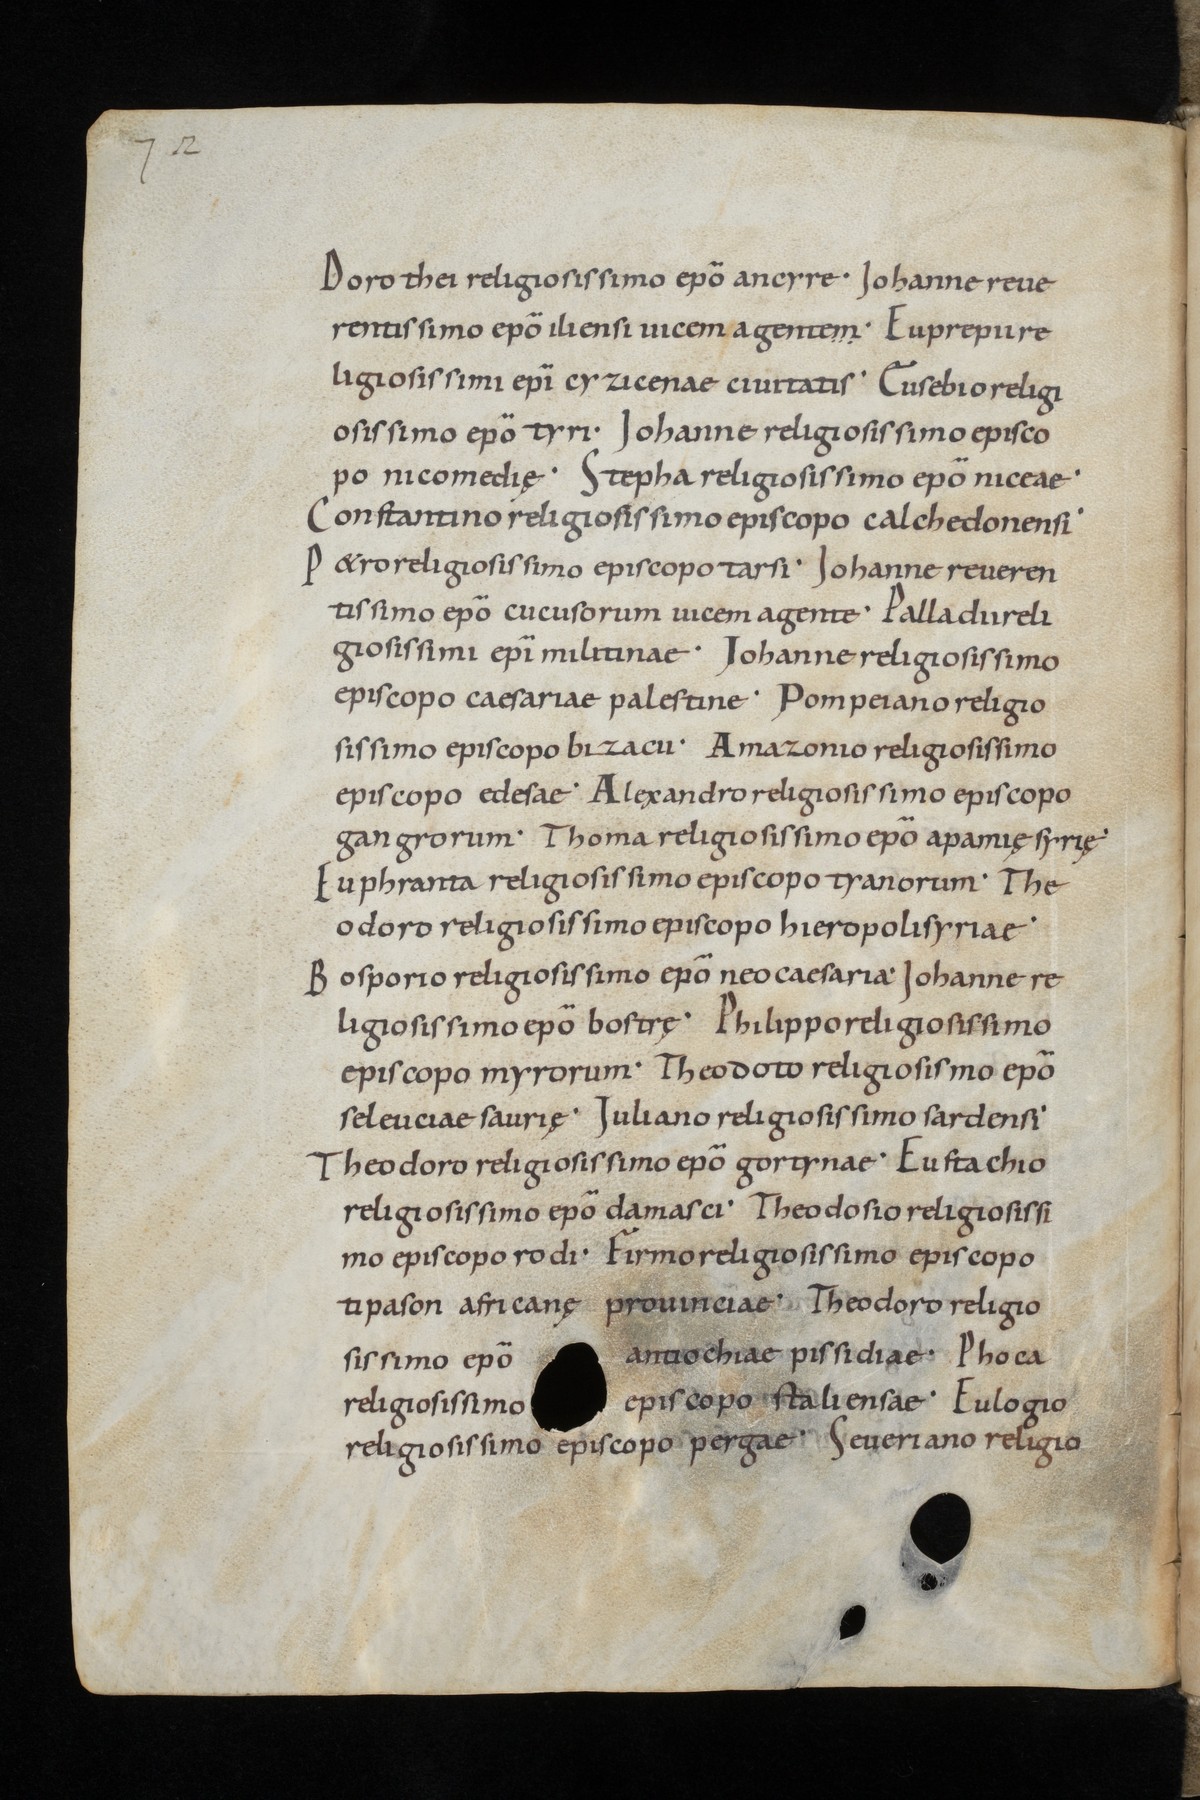 72
Dorothei religiosissimo epo̅ ancyre· Johanne reue
rentissimo epo̅ iliensi uicem agentem· Euprepii re
ligiosissimi epi̅ cyzicenae ciuitatis· Eusebio religi
osissimo epo̅ tyri· Johanne religiosissimo episco
po nicomedię· Stepha religiosissimo epo̅ niceae·
Constantino religiosissimo episcopo calchedonensi·
P&ro religiosissimo episcopo tarsi· Johanne reueren
tissimo epo̅ cucusorum uicem agente· Palladii reli
giosissimi epi̅ militinae· Johanne religiosissimo
episcopo caesariae palestine· Pompeiano religio
sissimo episcopo bizacii· Amazonio religiosissimo
episcopo edesae· Alexandro religiosissimo episcopo
gangrorum· Thoma religiosissimo epo̅ apamię syrię·
Euphranta religiosissimo episcopo tyanorum· The
odoro religiosissimo episcopo hieropoli syriae·
Bosporio religiosissimo epo̅ neocaesaria· Johanne re
ligiosissimo epo̅ bostrę· Philippo religiosissimo
episcopo myrorum· Theodoto religiosismo epo̅
seleuciae saurię· Juliano religiosissimo sardensi·
Theodoro religiosissimo epo̅ gortynae· Eustachio
religiosissimo epo̅ damasci· Theodosio religiosissi
mo episcopo rodi· Firmo religiosissimo episcopo
tipason africanę prouinciae· Theodoro religio
sissimo epo̅ antiochiae pissidiae· Phoca
religiosissimo episcopo staliensae· Eulogio
religiosissimo episcopo pergae· Seueriano religio